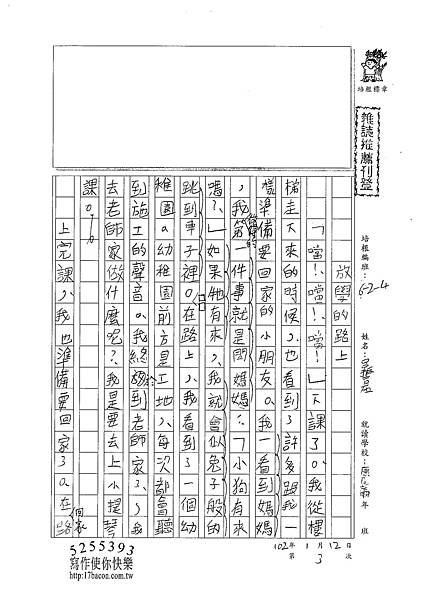 培根標章
推讀推薦刊登
培根編班：62-4
姓名：
就讀學校：
年
班
102年1月12日
第3次
放學的路上
「噹！噹！噹！」下課了。我從樓
梯走下來的時候，也看到了許多跟我一
樣準備要回家的小朋友。我一看到媽媽
，我第一件事就是問媽媽：「小狗有來
嗎？」如果牠有來，我就會似兔子般的
跳到車子裡。在路上，我看到一個幼
稚園。幼稚園前方是工地，每次都會聽
到施工的聲音。我終於到老師家，我
去老師家做什麼呢？我是要去上小提琴
課。
上完課，我也準備要回家了。在回家路
5255393
寫作使你快樂
http://17bacon.com.tw